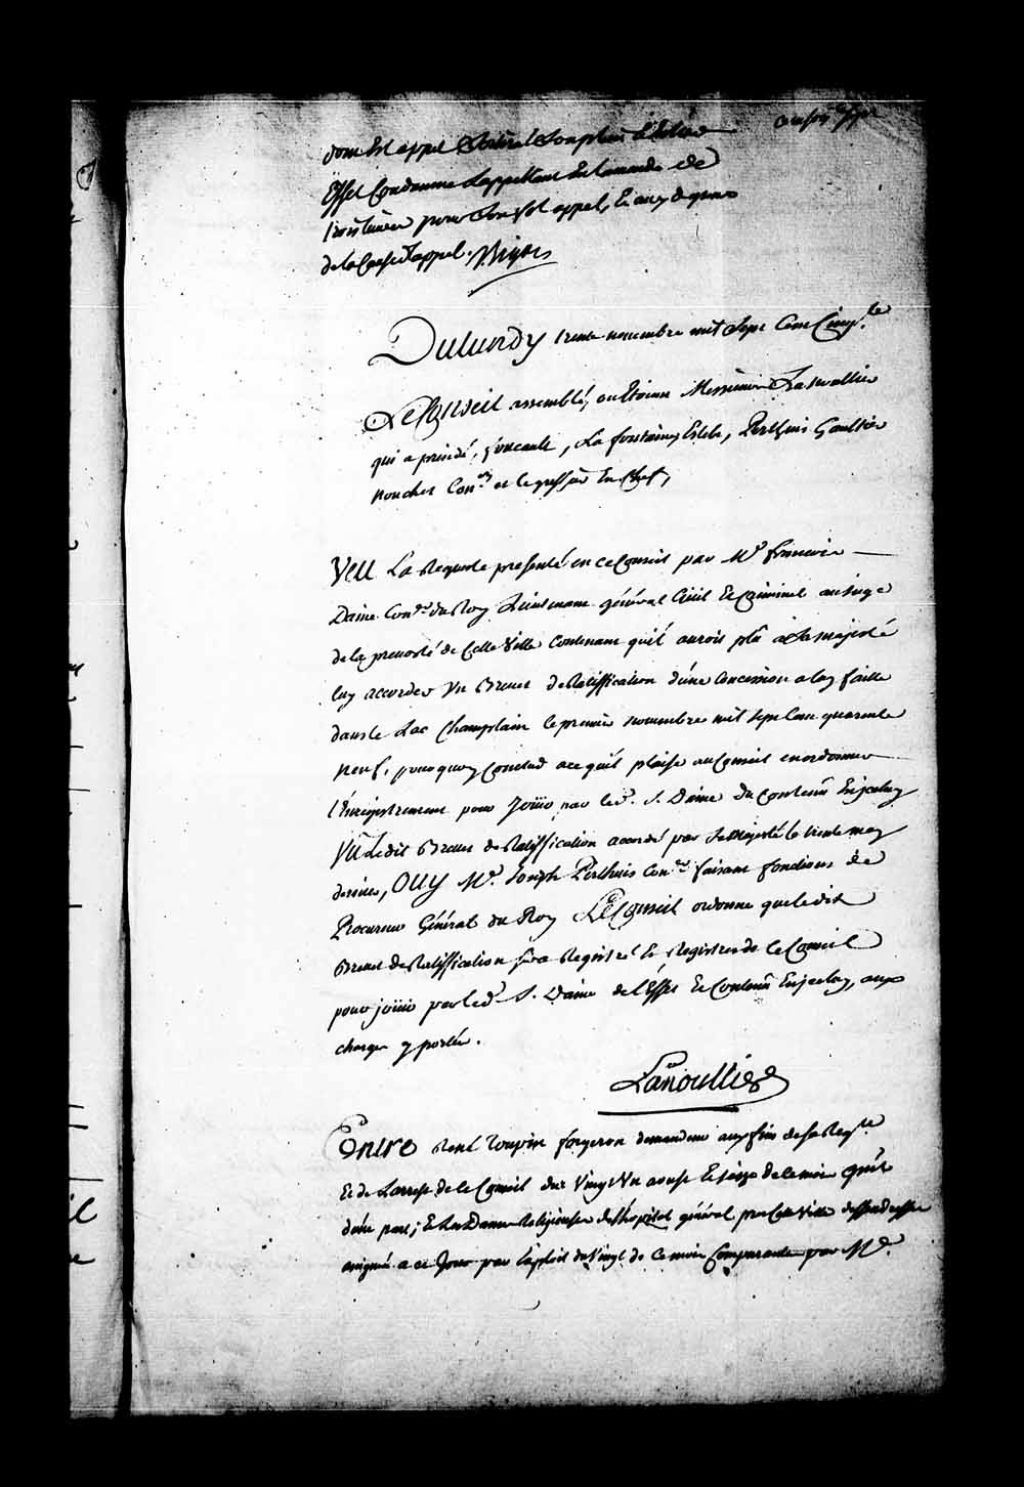 dont est appel Sortira son plein et Entier
Effet Condamne L'appellant En L'amende de
trois Livres pour Son fol appel, Et aux depens
de la Cause d'appel. Bigot
Du Lundy trente novembre mil Sept Cent Cinq.te
Le Conseil assemblé, ou Etoient Messieurs Lanoullier
qui a présidé, foucault, La fontaine, Estebe, Perthuis Gaultier
Nouchet Con.ers et le greffier En Chef,
VEU La Requete presenté en ce Conseil par M.e francois
Daine Con.er du Roy Lieutenant général Civil Et Criminel au siege
de la prevosté de Cette Ville Contenant quil auroit plû a Sa majesté
luy accorder Un Brevet de Ratiffication d'une Concession a luy faitte
dans le Lac Champlain le premier novembre mil sept Cent quarente
neuf, pourquoy Conclud a ce quil plaise au Conseil en ordonner
l'Enregistrement pour Jouir par led. S. Daine du Contenu En jceluy
VU Ledit Brevet de Ratiffication accordé par Sa Majesté le trente may
dernier, OUY M.e Joseph Perthuis Con.er faisant fonctions de
Procureur Général du Roy LE Conseil ordonne que ledit
Brevet de Ratiffication sera Registré Es Registres de ce Conseil
pour jouir par led. S. Daine de l'Effet Et Contenu En jceluy, aux
charges y portées.
Lanoullier
Entre René Toupin forgeron demandeur aux fins de sa Req.te
Et de L'arrest de ce Conseil du Vingt Un aoust Et seize de ce mois
d'une part; Et Les Dames Religieuses de l'hopital général pres Cette Ville deffenderesses
assignés a ce Jour par Exploit du Vingt de ce mois Comparante par M.e